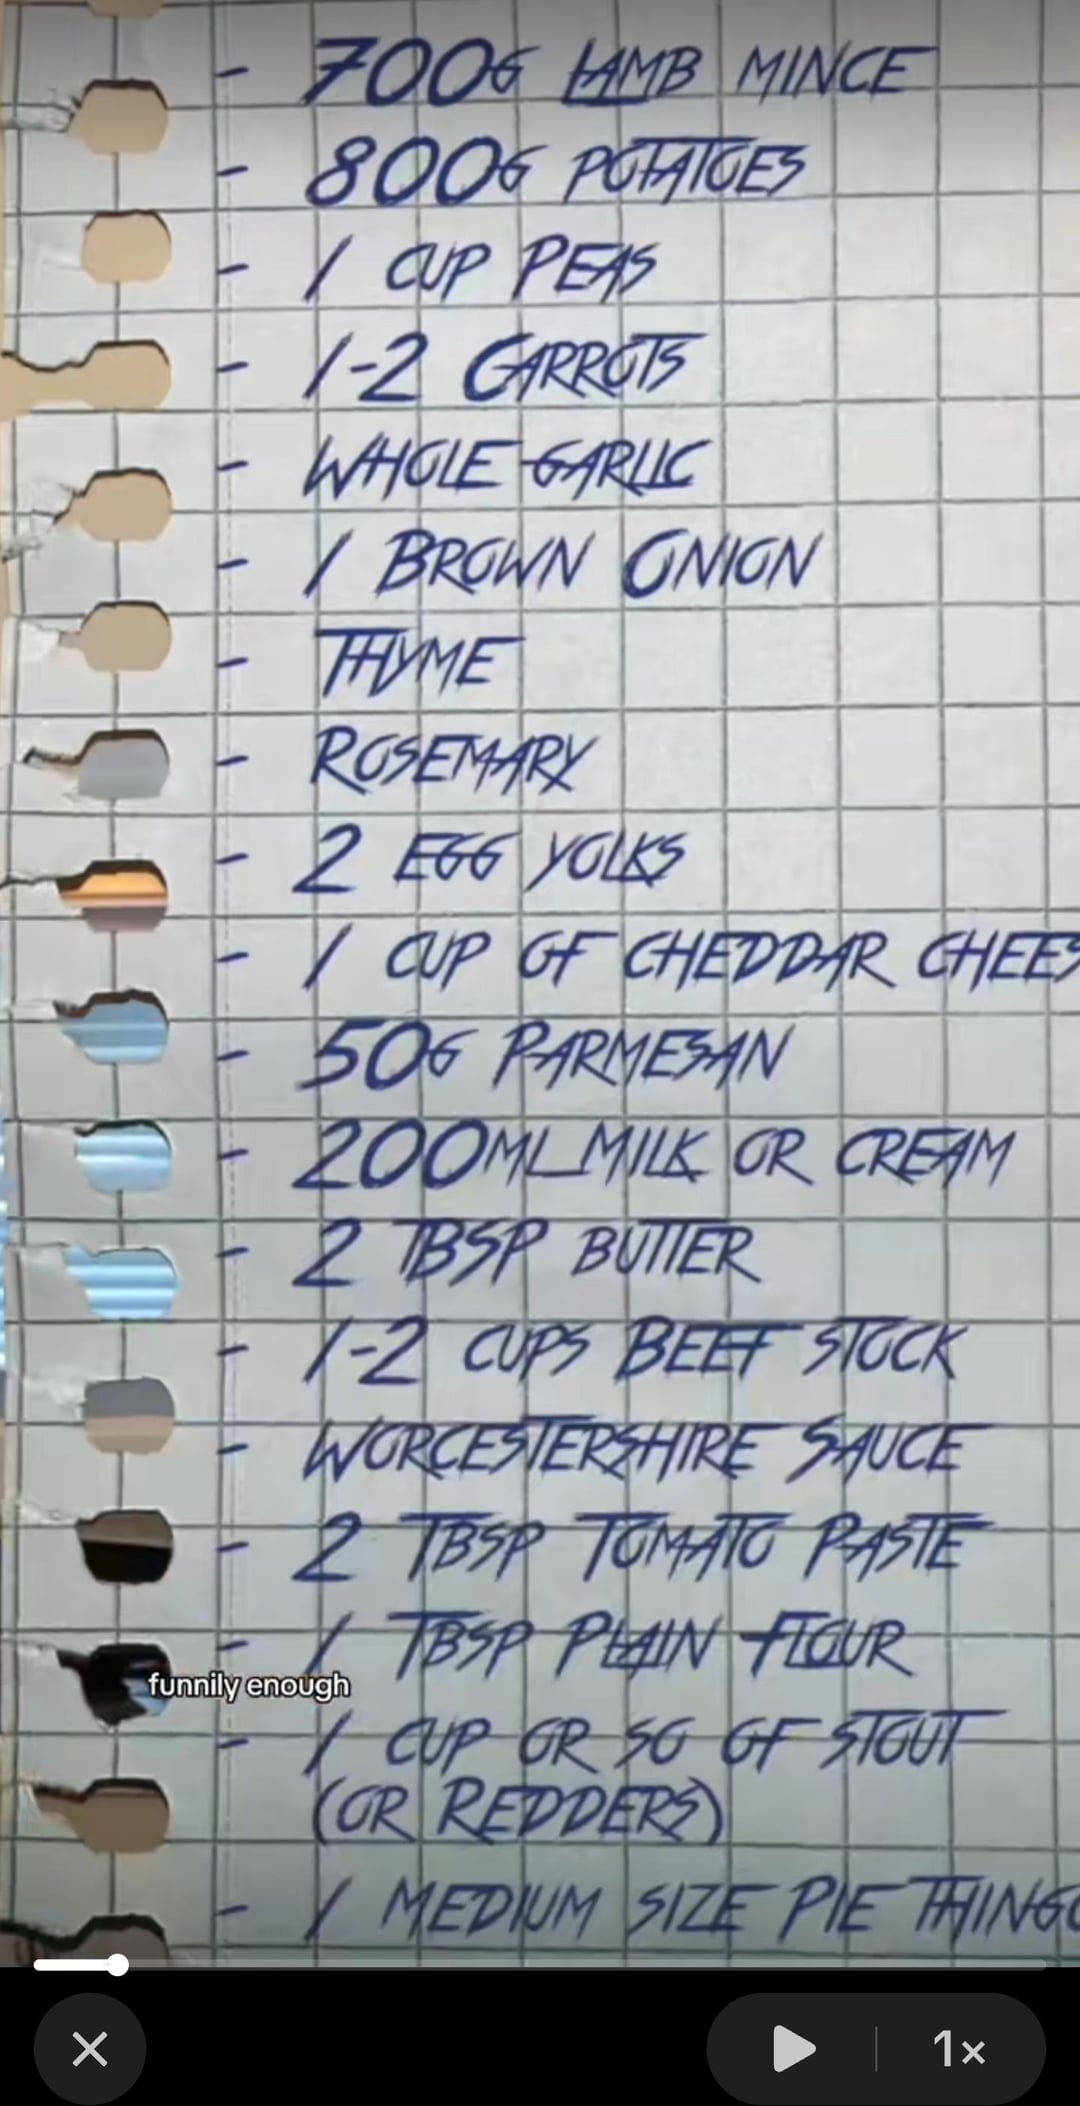 - 700G LAMB MINCE
- 800G POTATOES
- 1 CUP PEAS
- 1-2 CARROTS
- WHOLE GARLIC
- 1 BROWN ONION
- THYME
- ROSEMARY
- 2 EGG YOLKS
- 1 CUP OF CHEDDAR CHEES
- 50G PARMESAN
- 200ML MILK OR CREAM
- 2 TBSP BUTTER
- 1-2 CUPS BEEF STOCK
- WORCESTERSHIRE SAUCE
- 2 TBSP TOMATO PASTE
- 1 TBSP PLAIN FLOUR
funnily enough
- 1 CUP OR SO OF STOUT
(OR REDDERS)
- 1 MEDIUM SIZE PIE THINGO
1×